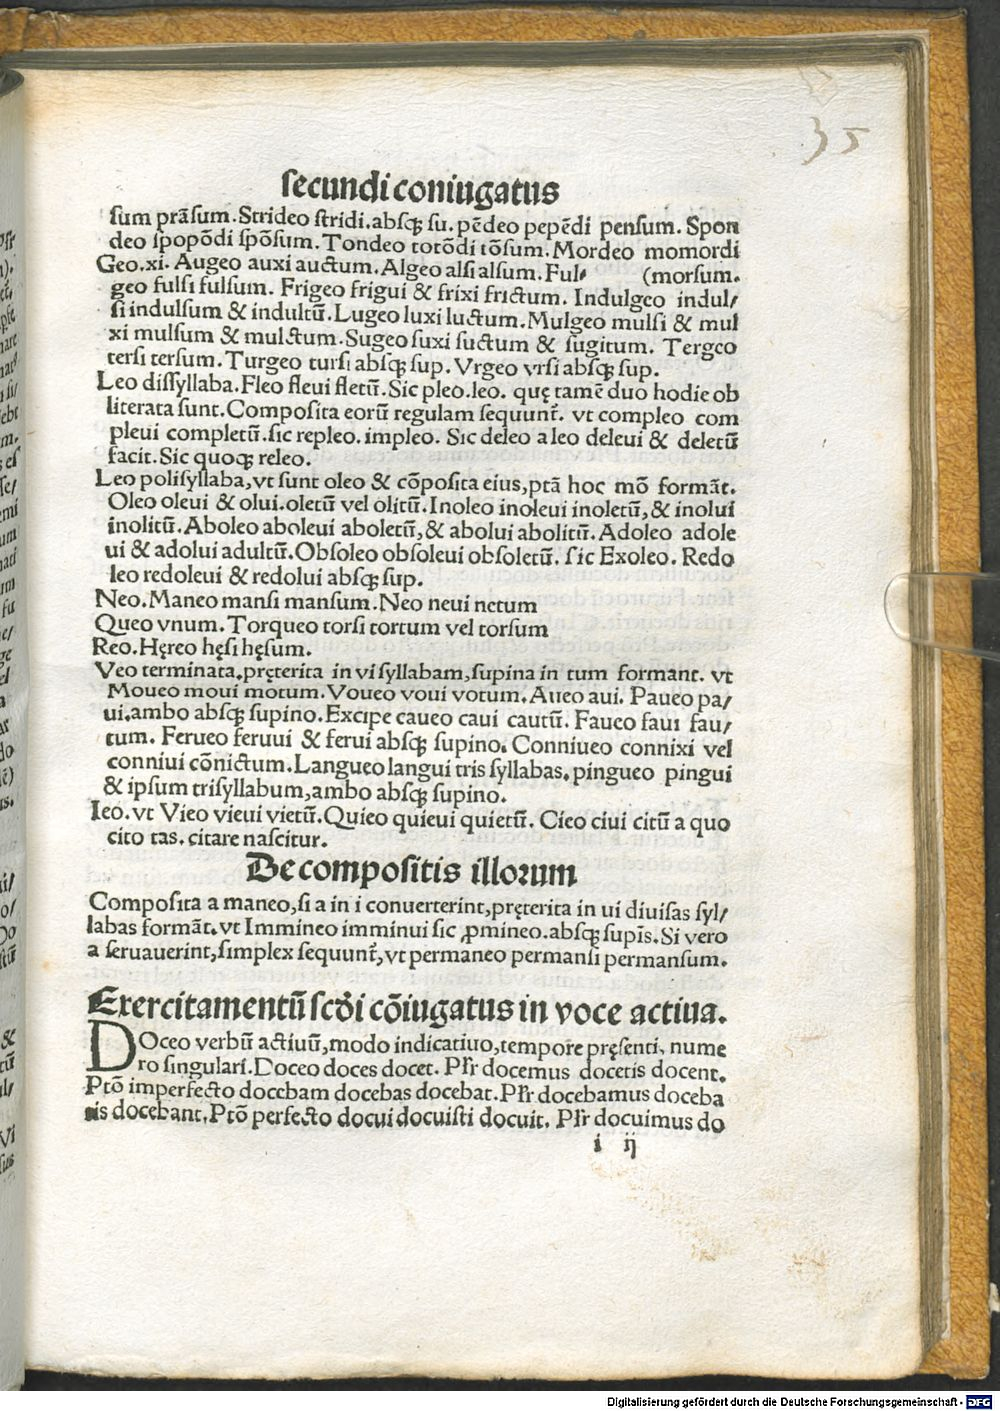 35
secundi coniugatus
sum prāsum. Strideo stridi. absqꝫ su. pēdeo pepēdi pensum. Spon
deo spopōdi spōsum. Tondeo totōdi tōsum. Mordeo momordi
Geo. xi. Augeo auxi auctum. Algeo alsi alsum. Ful⸗ (morsum.
geo fulsi fulsum. Frigeo frigui & frixi frictum. Indulgeo indul/
si indulsum & indultū. Lugeo luxi luctum. Mulgeo mulsi & mul
xi mulsum & mulctum. Sugeo suxi suctum & sugitum. Tergeo
tersi tersum. Turgeo tursi absqꝫ sup. Vrgeo vrsi absqꝫ sup.
Leo dissyllaba. Fleo fleui fletū. Sic pleo. leo. quę tamē duo hodie ob
literata sunt. Composita eorū regulam sequunt᷑. vt compleo com
pleui completū. sic repleo. impleo. Sic deleo a leo deleui & deletū
facit. Sic quoqꝫ releo.
Leo polisyllaba, vt sunt oleo & cōposita eius, ptā hoc mō formāt.
Oleo oleui & olui. oletū vel olitū. Inoleo inoleui inoletū, & inolui
inolitū. Aboleo aboleui aboletū, & abolui abolitū. Adoleo adole
ui & adolui adultū. Obsoleo obsoleui obsoletū. sic Exoleo. Redo
leo redoleui & redolui absqꝫ sup.
Neo. Maneo mansi mansum. Neo neui netum
Queo vnum. Torqueo torsi tortum vel torsum
Reo. Hęreo hęsi hęsum.
Veo terminata. pręterita in vi syllabam, supina in tum formant. vt
Moueo moui motum. Voueo voui votum. Aueo aui. Paueo pa/
ui. ambo absqꝫ supino. Excipe caueo caui cautū. Faueo faui fau/
tum. Ferueo feruui & ferui absqꝫ supino. Conniueo connixi vel
conniui cōnictum. Langueo langui tris syllabas. pingueo pingui
& ipsum trisyllabum, ambo absqꝫ supino.
Ieo. vt Vieo vieui vietū. Quieo quieui quietū. Cieo ciui citū a quo
cito tas. citare nascitur.
De compositis illorum
Composita a maneo, si a in i conuerterint, pręterita in ui diuisas syl/
labas formāt. vt Immineo imminui sic ꝓmineo. absqꝫ supīs. Si vero
a seruauerint, simplex sequunt᷑, vt permaneo permansi permansum.
Exercitamentū scd̄i cōiugatus in voce actiua.
DOceo verbū actiuū, modo indicatiuo, tempore pręsenti, nume
ro singulari. Doceo doces docet. Pl̄r docemus docetis docent.
Ptō imperfecto docebam docebas docebat. Pl̄r docebamus doceba
tis docebant. Ptō perfecto docui docuisti docuit. Pl̄r docuimus do
i ij
Digitalisierung gefördert durch die Deutsche Forschungsgemeinschaft - DFG